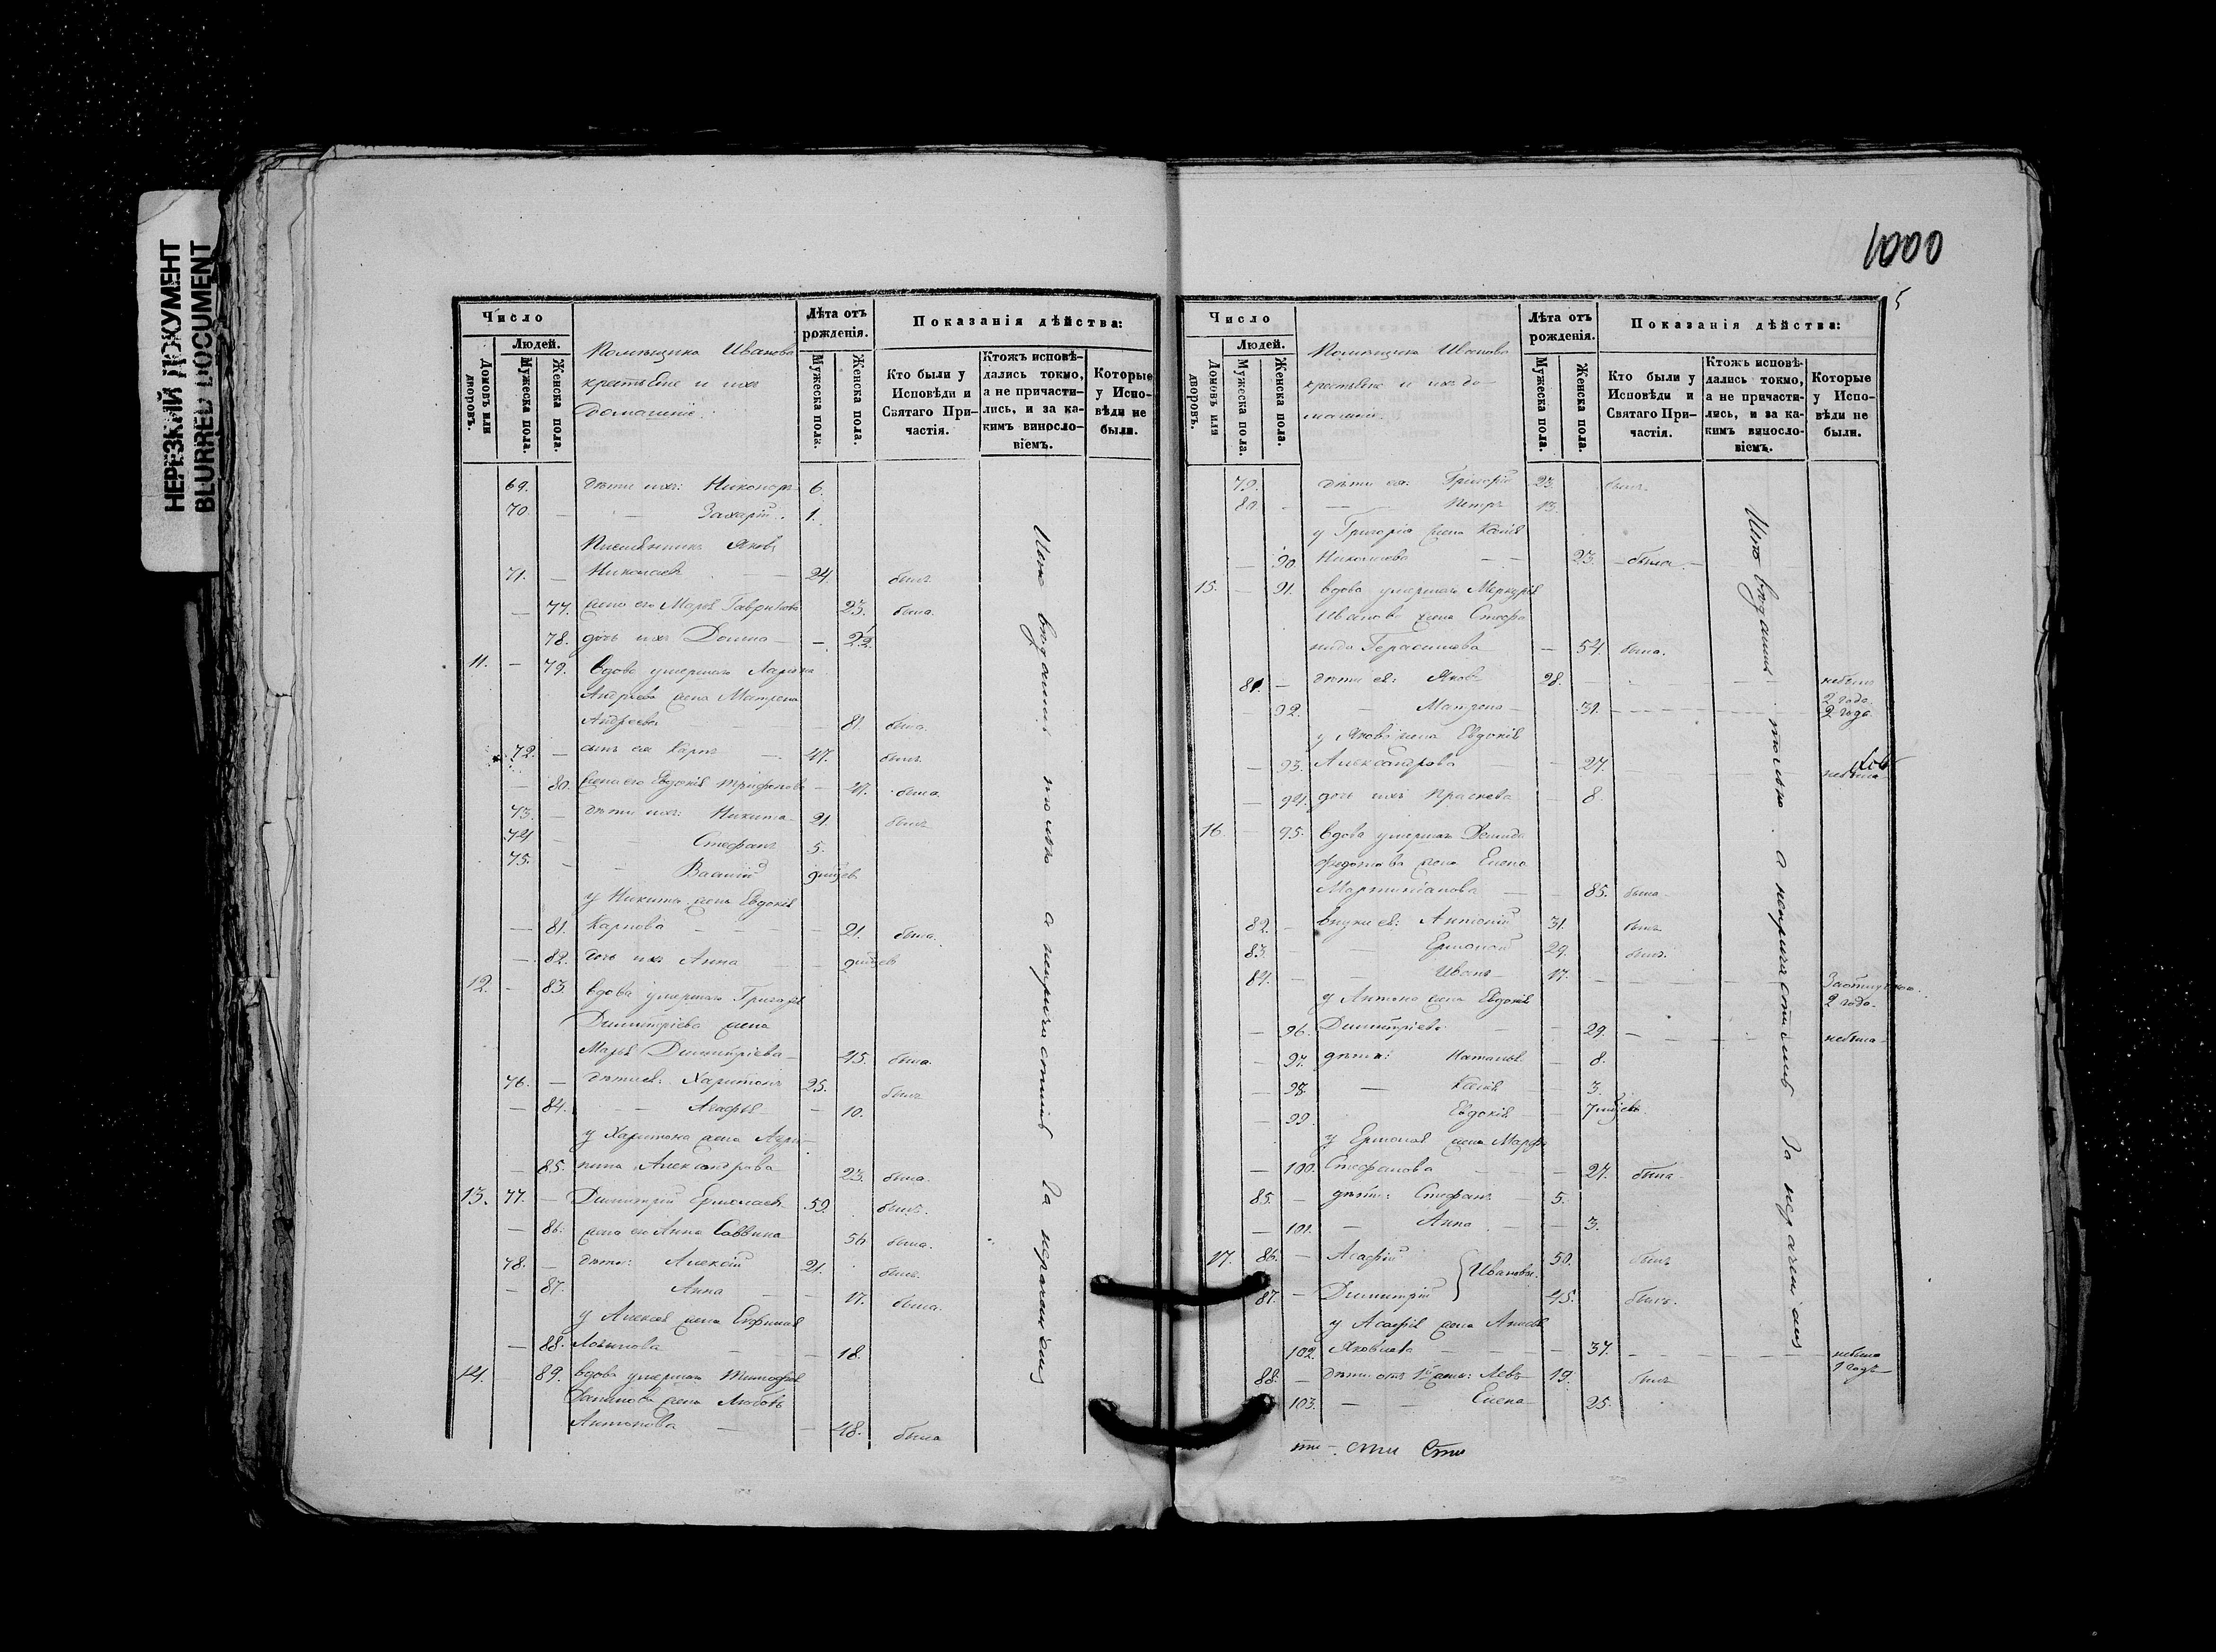 НЕРЕЗКИЙ ДОКУМЕНТ
BLURRED DOCUMENT
Число
Людей.
Домовъ или дворовъ.
Мужеска пола.
Женска пола.
Помѣщика Иванова
крестьяне и ихъ
домашніе.
Лѣта отъ рожденія.
Мужеска пола.
Женска пола.
Показанія дѣйства:
Кто были у Исповѣди и Святаго Причастія.
Ктожъ исповѣдались токмо, а не причастились, и за какимъ винословіемъ.
Которые у Исповѣди не были.
69. дѣти ихъ: Никоноръ 6.
70. — — Захарій. 1.
Племянникъ Яковъ
71. — Николаевъ — 24. былъ
— 77. жена его Марья Гаврилова 23. была.
78. дочь ихъ Домна — — 2½.
11. — 79. вдова умершаго
Андреева жена Матрона
Андреева — 81. была.
72. — сынъ ея Карпъ — 47. былъ
— 80. жена его Евдокія Трифонова — 47. была.
73. — дѣти ихъ: Никита 21. былъ
74 — Стефанъ 5.
75. — — Василій
у Никиты жена Евдокія
— 81. Карпова — — — 21. была.
— 82. дочь ихъ Анна — —
12. — 83. вдова умершаго Григорія
Димитріева жена
Марья Димитріева — 45. была.
76. — дѣти ея: Харитонъ 25. былъ
— 84. — — Агафья — — 10.
у Харитона жена Агри-
— 85. пина Александрова 23. была.
13. 77. — Димитрій Ермолаевъ 59. былъ.
— 86. жена его Анна Саввина 56 была.
78. — дѣти: Алексій 21. былъ.
— 87. Анна — — 17. была.
у Алексѣя жена Евфимія
— 88. Логинова — — — 18.
14. 89. вдова умершаго Тимофея
жена Любовь
Антонова — — 48. была
Исповѣдались только а непричастились за нерачениемъ
1000
5
Число
Людей.
Домовъ или дворовъ.
Мужеска пола.
Женска пола.
Помѣщика Иванова
крестьяне и ихъ до-
машніе.
Лѣта отъ рожденія.
Мужеска пола.
Женска пола.
Показанія дѣйства:
Кто были у Исповѣди и Святаго Причастія.
Ктожъ исповѣдались токмо, а не причастились, и за какимъ винословіемъ.
Которые у Исповѣди не были.
79. дѣти ея: Григорій 23. былъ.
80. — — Петръ 13.
у Григорія жена Ксенія
— 90. Николаева — — 23. — была. —
15. — 91. вдова умершаго Меркурія
Иванова жена Стефа
нида Герасимова — 54. была.
81. — дѣти ея: Яковъ 28. — небылъ 2 года.
— 92. — Матрона — 31. — 2 года.
у Якова жена Евдокія
— 93. Александрова — — 27. — небыла
— 94. дочь ихъ Праскева — 8.
16. — 95. вдова умершаго Демида
Федотова жена Елена
Мартиніанова — — 85. была —
82. — внуки ея: Антоній 31. былъ
83. — — Ермолай 29. былъ.
84. — — Иванъ — 17. — 2 года.
у Антона жена Евдокія
— 96. Димитріева — — 29. — небыла —
— 97. дѣти: Наталья — 8.
— 98. — Ксенія — 3.
— 99. Евдокія —
у Ермолая жена Марфа
— 100. Стефанова — — 27. была.
85. — дѣти: Стефанъ — 5.
— 101. — Анна — — 3.
17. 86. — Асафій 50. былъ
Ивановы.
87. — Димитрій 45. былъ.
у Асафія жена Анисья
102. Яковлева — — — 37. — небыла 1 годъ
88. — дѣти отъ 1й жены: Левъ 19. былъ
103. — — Елена — 25.
Исповѣдались только а непричастились за нерачениемъ
сти сти